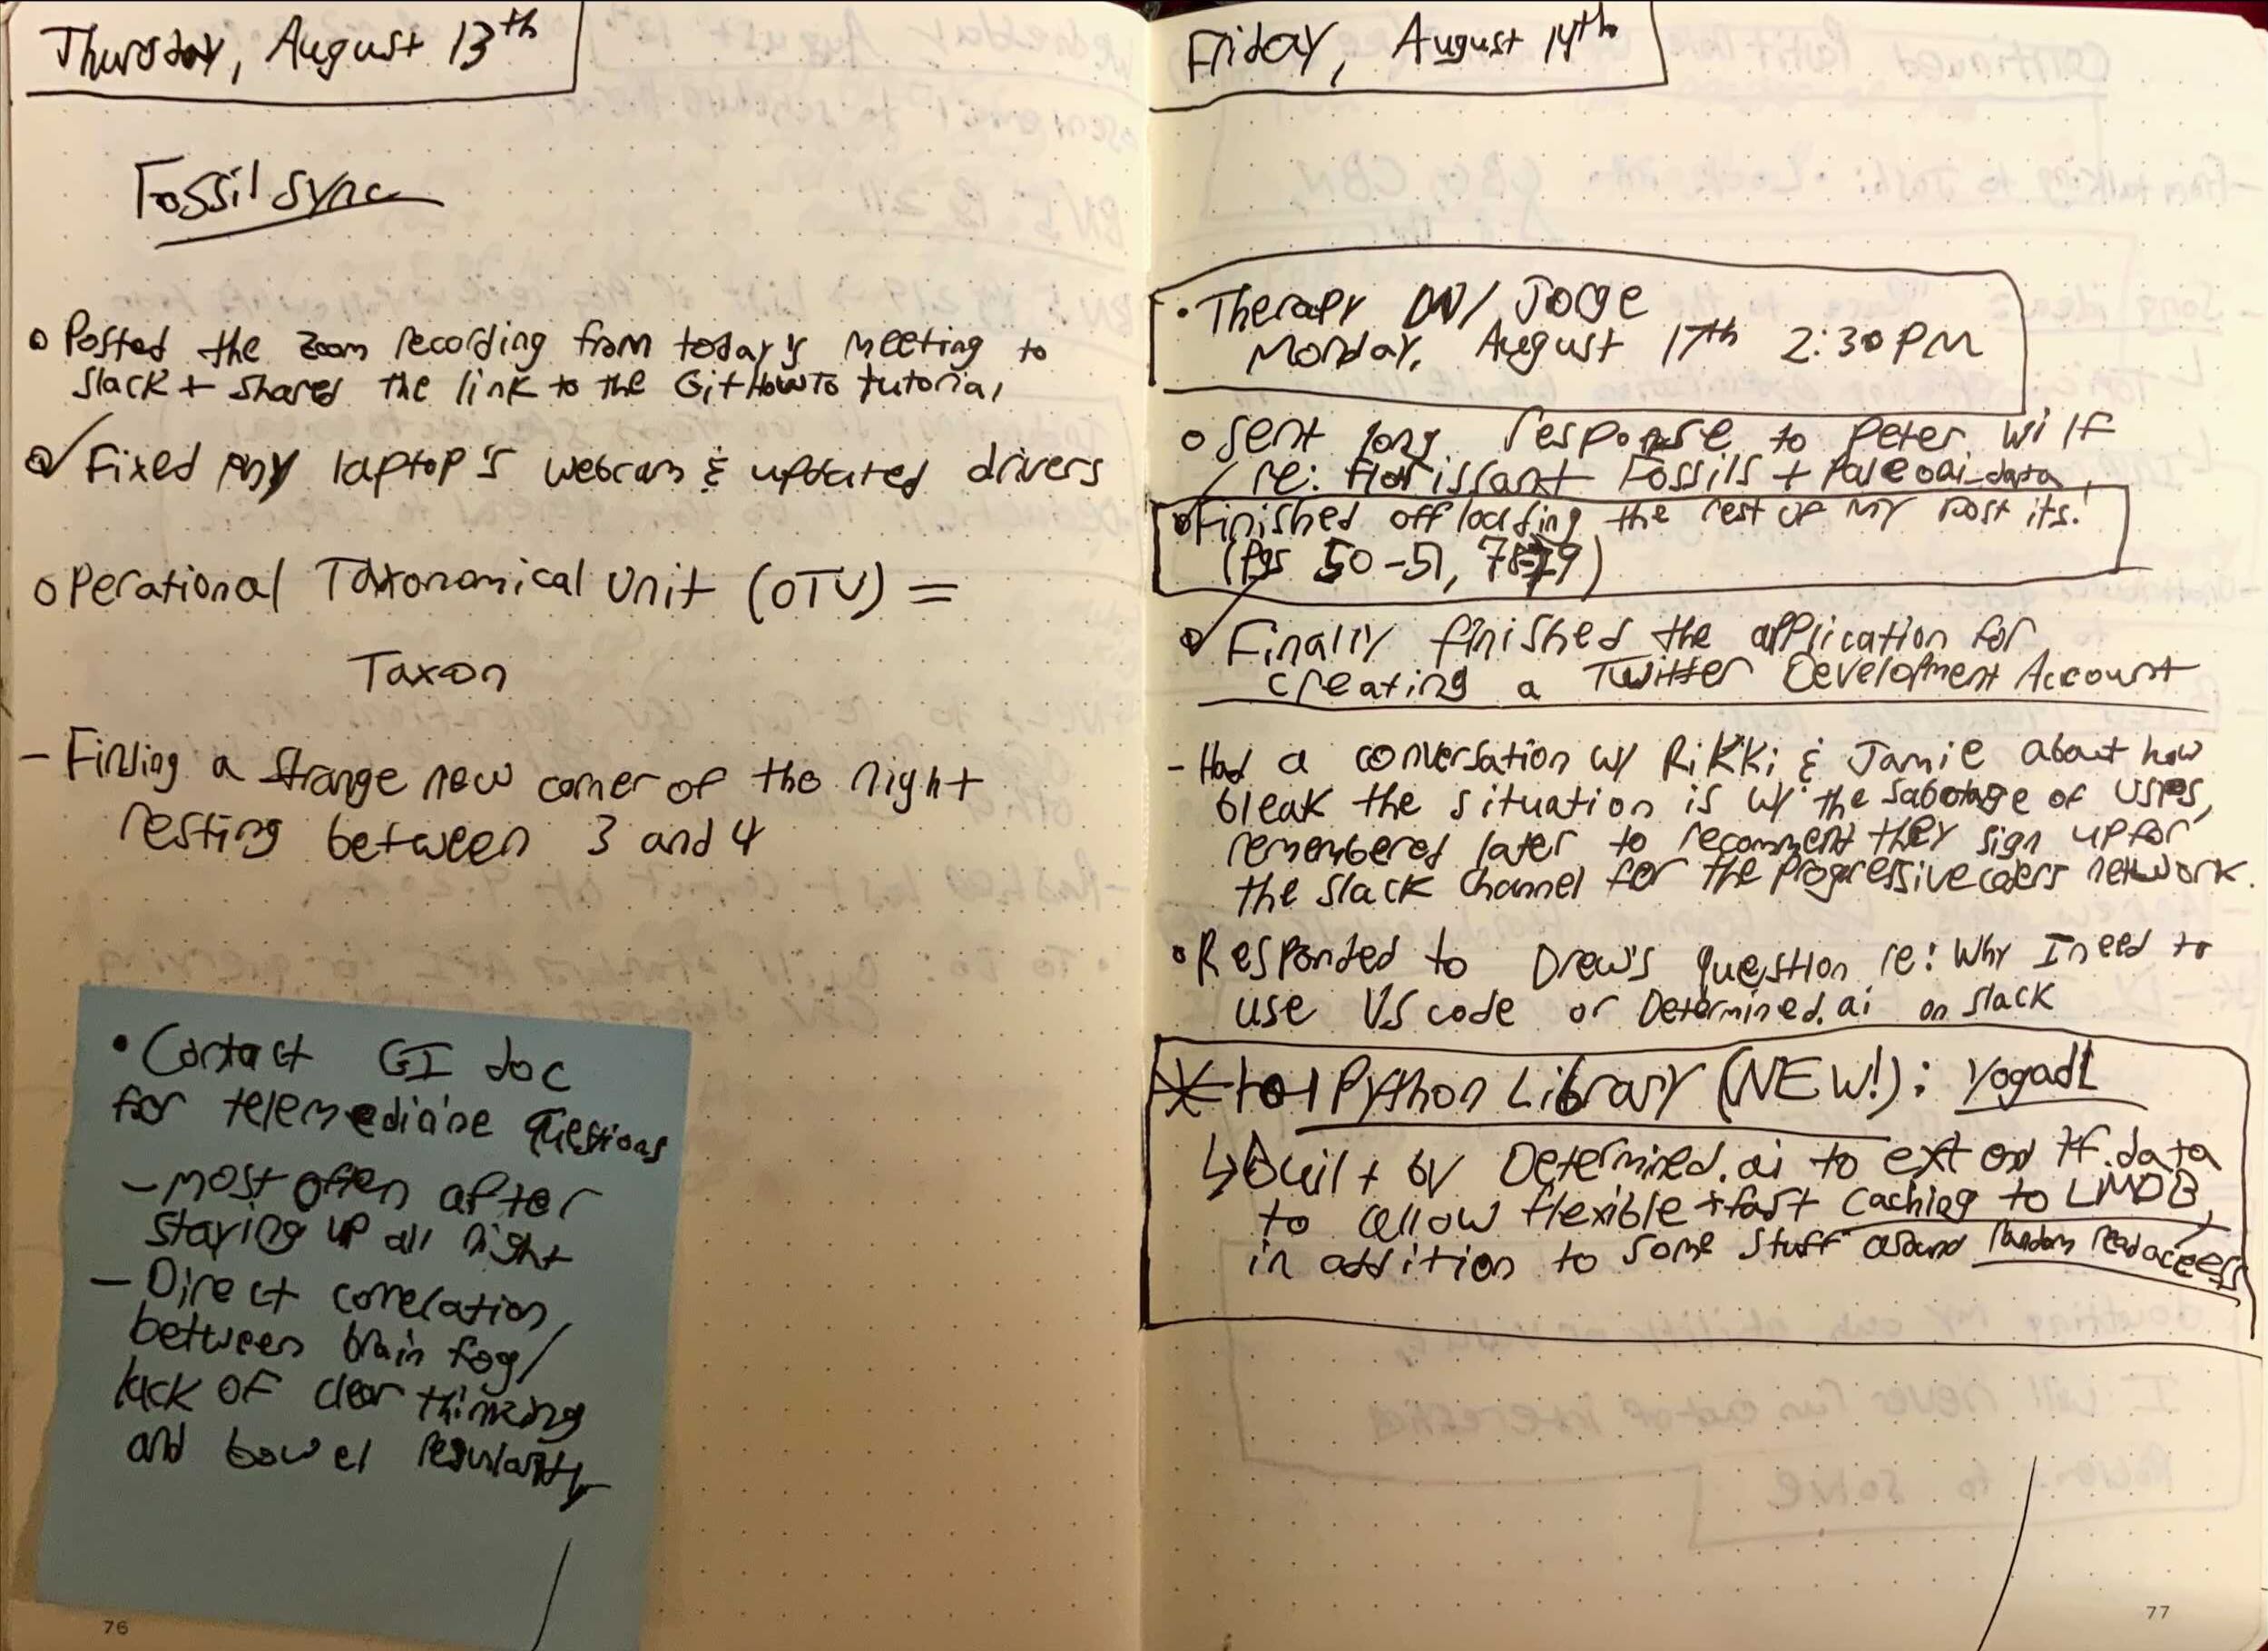 Thursday, August 13th
Fossil Sync
Posted the zoom recording from today's meeting to
Slack + shared the link to the GitHowTo tutorial
Fixed my laptop's webcam & updated drivers
Operational Taxonomical Unit (OTU) =
Taxon
- Finding a strange new corner of the night
resting between 3 and 4
• Contact GI doc
for telemedicine questions
- most often after
staying up all night
- Direct correlation
between brain fog/
lack of clear thinking
and bowel regularity
76
Friday, August 14th
• Therapy w/ Jorge
Monday, August 17th 2:30 PM
Sent long response to Peter Wilf
re: Florissant Fossils + paleoai_data
Finished offloading the rest of my post its.
(Pgs 50-51, 78-79)
Finally finished the application for
creating a Twitter Development Account
- Had a conversation w/ Rikki & Jamie about how
bleak the situation is w/ the sabotage of USPS,
remembered later to recommend they sign up for
the slack channel for the progressive coders network.
• Responded to Drew's question re: Why I need to
use VS code or Determined.ai on slack
Python Library (NEW!): Yogadl
↳ Built by Determined.ai to extend tf.data
to allow flexible + fast caching to LMDB,
in addition to some stuff around random read access
77